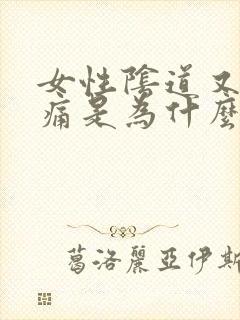 女性陰道又
痛是為什麼
葛洛麗亞伊斯